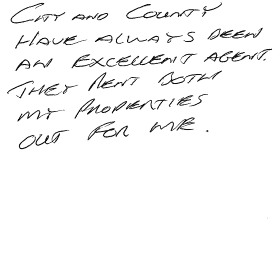 CITY AND COUNTY
HAVE ALWAYS BEEN
AN EXCELLENT AGENT.
THEY RENT BOTH
MY PROPERTIES
OUT FOR ME.